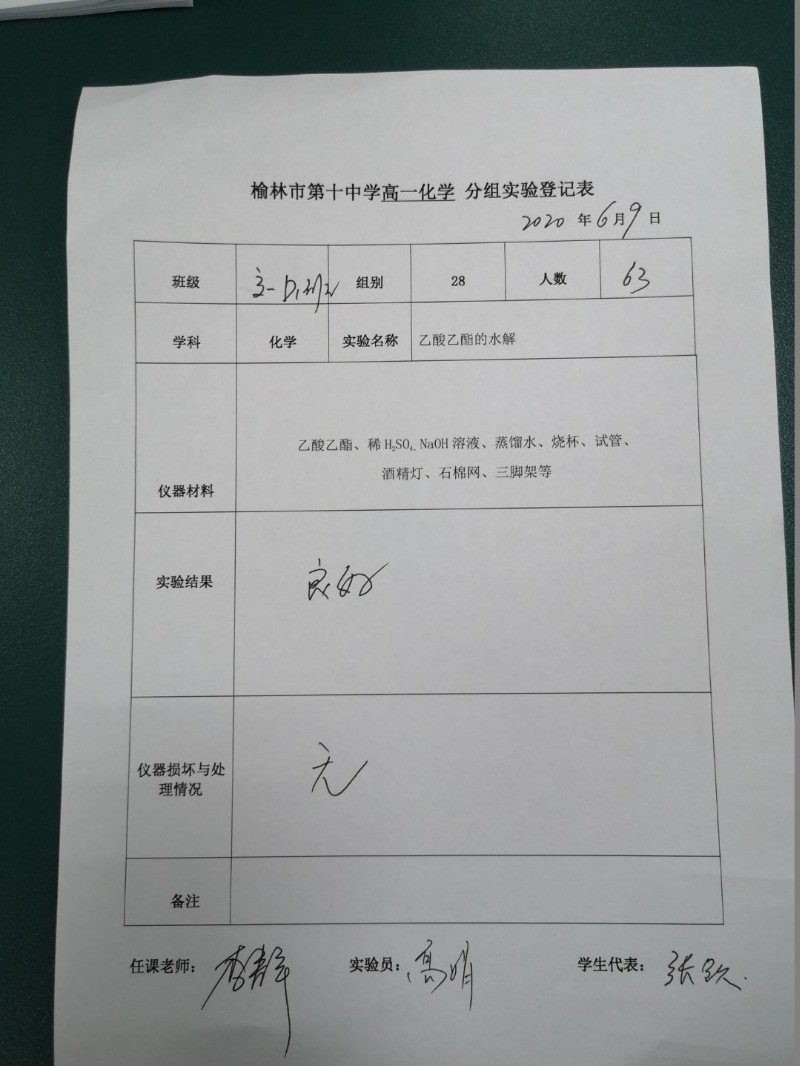 榆林市第十中学高一化学 分组实验登记表
2020 年 6 月 9 日
班级 组别 28 人数 63
学科 化学 实验名称 乙酸乙酯的水解
乙酸乙酯、稀 H₂SO₄、NaOH 溶液、蒸馏水、烧杯、试管、
酒精灯、石棉网、三脚架等
仪器材料
实验结果 良好
仪器损坏与处
理情况
无
备注
任课老师: 实验员: 高明 学生代表: 张